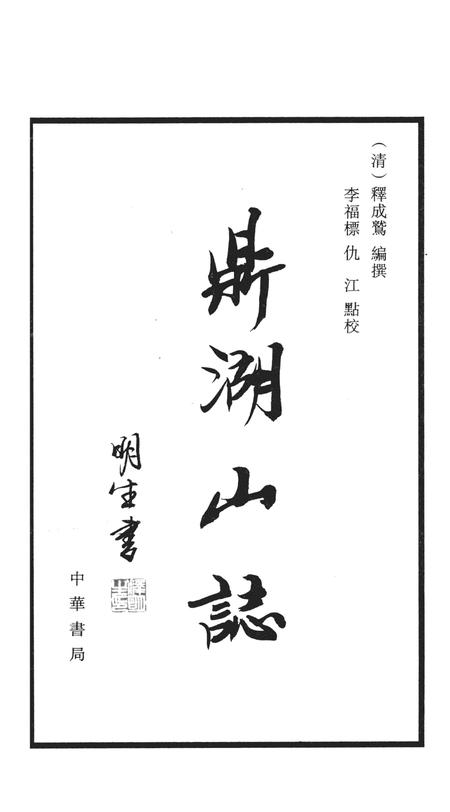 （清）釋成鷲 編撰
李福標 仇 江 點校
鼎湖山誌
明生書
中華書局